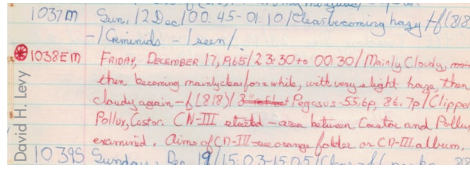 1037M Sun, 12 Dec/00.45-01.10/Clear becoming hazy -f(8
-/Geminids -/seen/
1038EM FRIDAY, DECEMBER 17, A65/23:30 to 00:30/Mainly Cloudy,
then becoming mainly clear for a while, with very slight haze, then
cloudy again -f(818)/3 Pegasus 55.6p, 86.7p/Clipper
Pollux, Castor. CN-III - area between Castor and Pollux
examined. Aims of CN-III - see orange folder or CN-III album.
1039S Sunday, Dec 19/15.03-1505/
David H. Levy